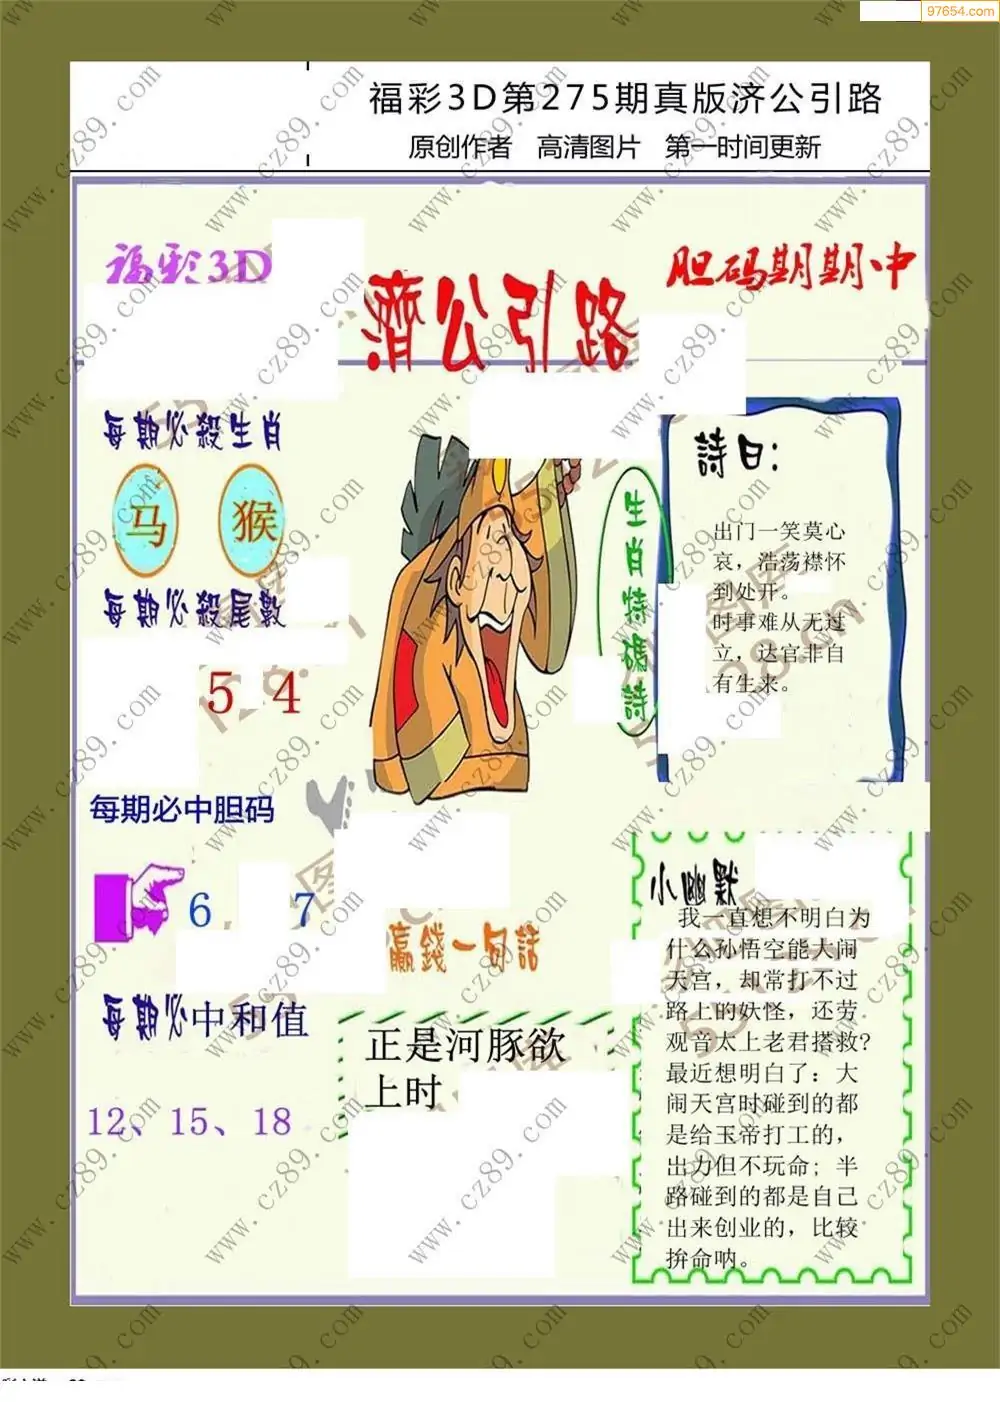 97654.com
福彩3D第275期真版济公引路
原创作者 高清图片 第一时间更新
福彩3D
胆码期期中
濟公引路
每期必殺生肖
马 猴
每期必殺尾數
5 4
每期必中胆码
6 7
每期必中和值
12、15、18
生肖特碼詩
詩曰：
出门一笑莫心
哀，浩荡襟怀
到处开。
时事难从无过
立，达官非自
有生来。
贏錢一句話
正是河豚欲
上时
小幽默
我一直想不明白为
什么孙悟空能大闹
天宫，却常打不过
路上的妖怪，还劳
观音太上老君搭救?
最近想明白了：大
闹天宫时碰到的都
是给玉帝打工的，
出力但不玩命；半
路碰到的都是自己
出来创业的，比较
拚命呐。
www.cz89.com